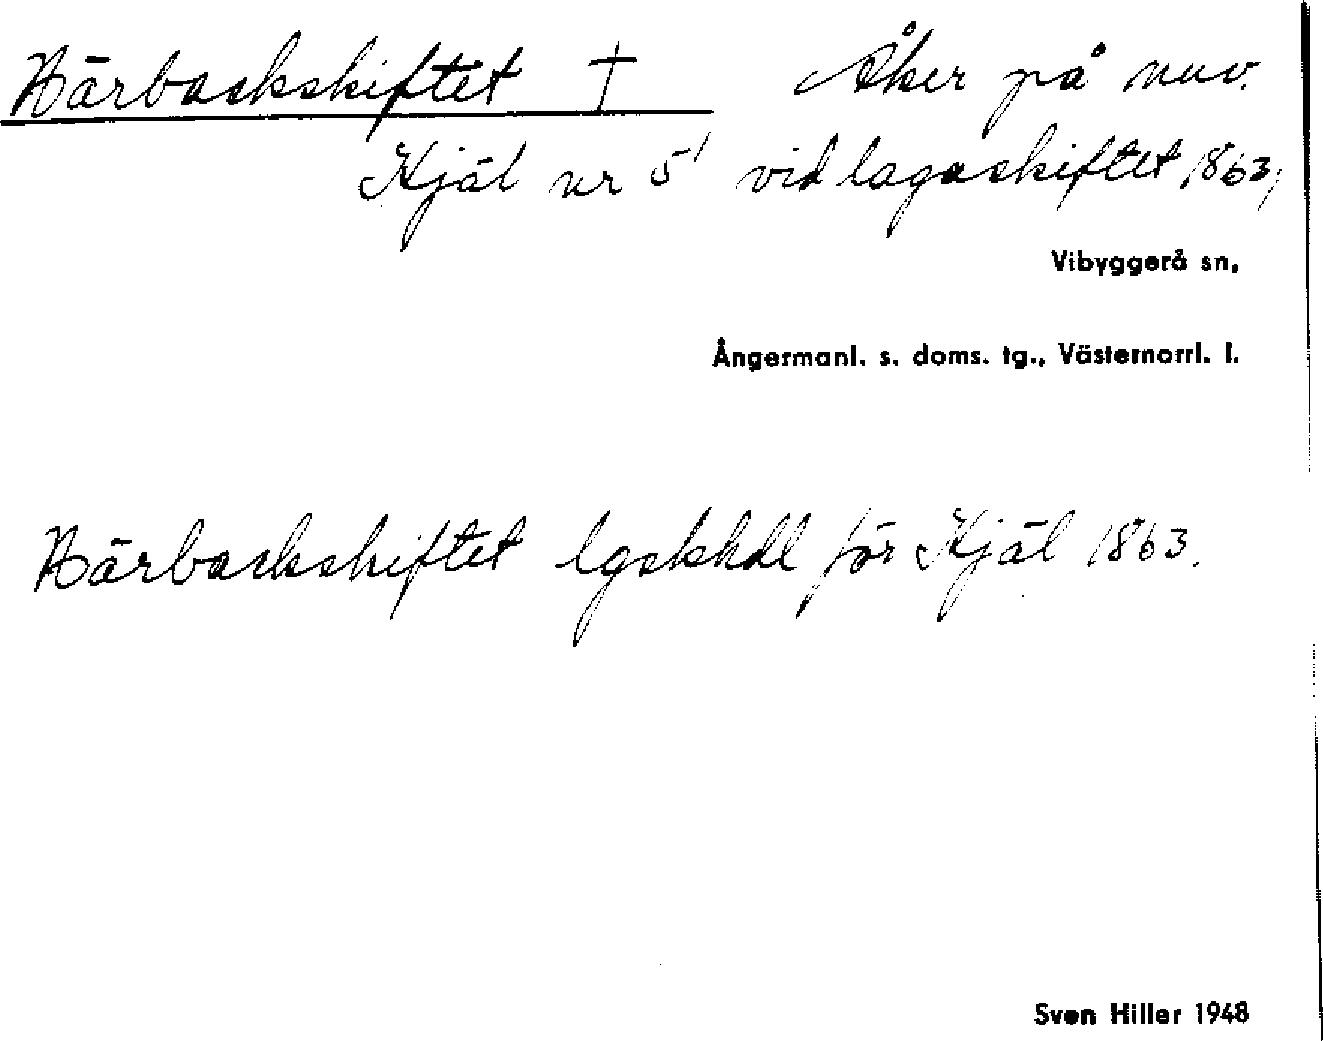 Bärbackskiftet † Åker på nuv.
Kjäl nr 5¹ vid lagaskiftet 1863,
Vibyggerå sn,
Ångermanl. s. doms. tg., Västernorrl. l.
Bärbackskiftet lgskhdl för Kjäl 1863.
Sven Hiller 1948